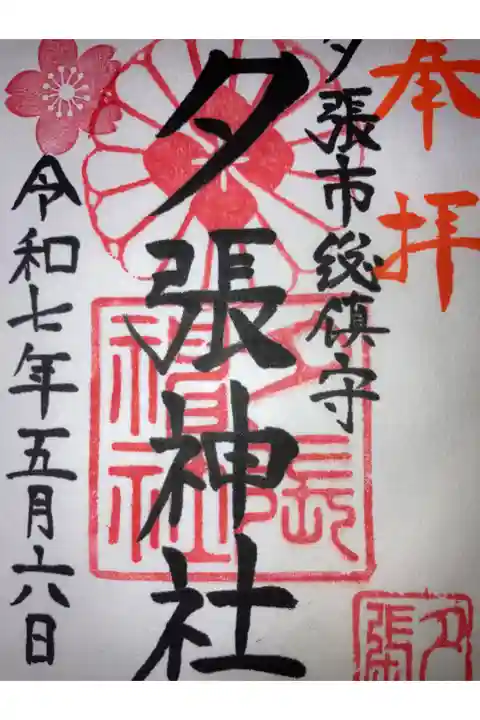 奉拝
夕張市総鎮守
夕張神社
令和七年五月六日
夕張神社